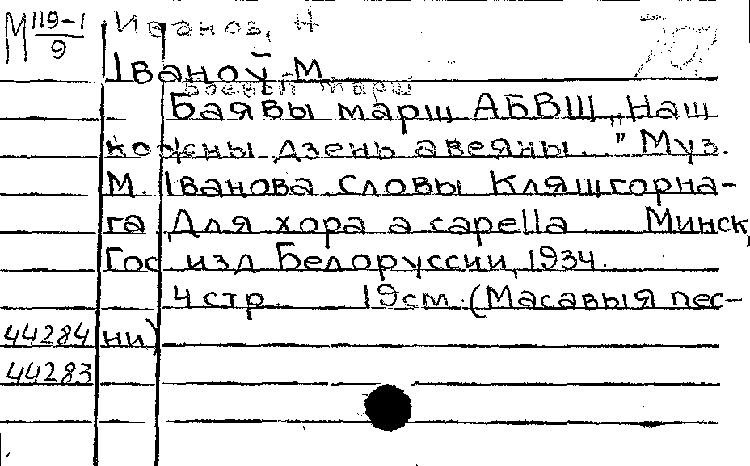 М 119-1/9 Иванов, Н
Іваноў М
Боевый марш
Баявы марш АБВЩ „Наш
кожны дзень авеяны..." Муз.
М. Іванова Словы Кляшгорна-
га Для хора a capella Минск,
Гос изд Белоруссии, 1934.
4 стр 19см. (Масавыя пес-
44284 ни)
44283